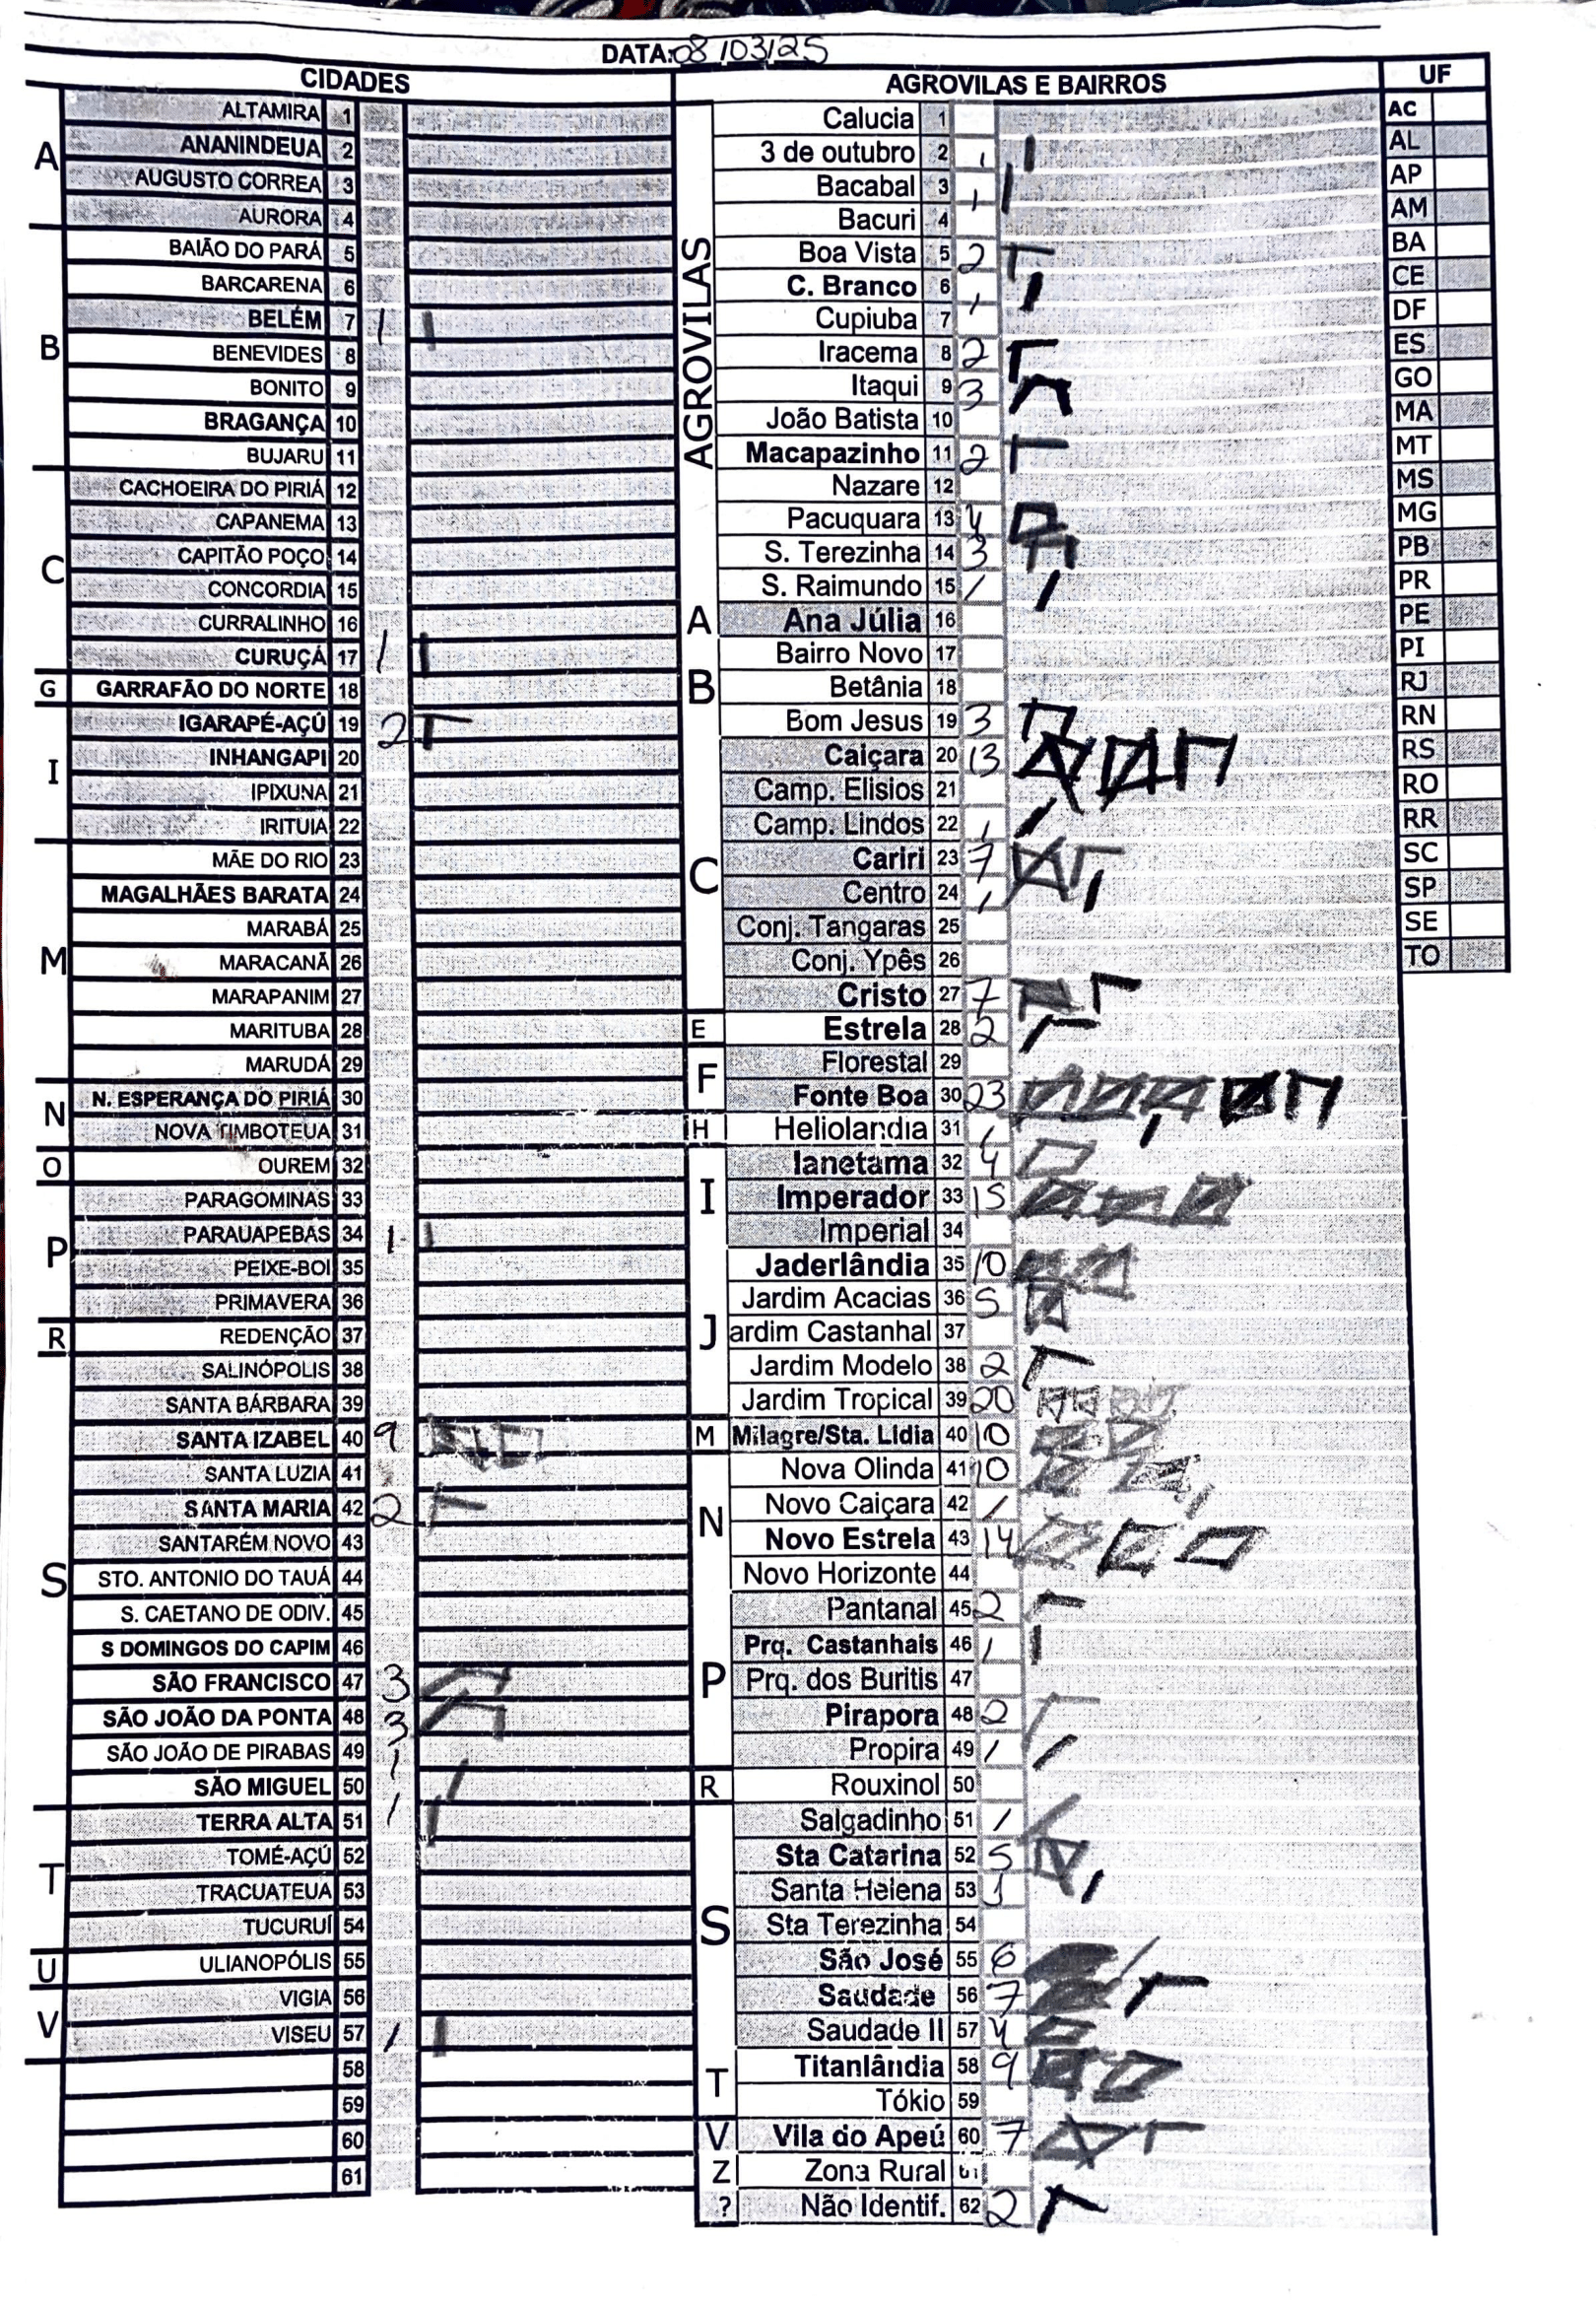 DATA: 08/03/25
CIDADES
A
ALTAMIRA 1
ANANINDEUA 2
AUGUSTO CORREA 3
AURORA 4
B
BAIÃO DO PARÁ 5
BARCARENA 6
BELÉM 7 1
BENEVIDES 8
BONITO 9
BRAGANÇA 10
BUJARU 11
C
CACHOEIRA DO PIRIÁ 12
CAPANEMA 13
CAPITÃO POÇO 14
CONCORDIA 15
CURRALINHO 16
CURUÇÁ 17 1
G
GARRAFÃO DO NORTE 18
I
IGARAPÉ-AÇÚ 19 2
INHANGAPI 20
IPIXUNA 21
IRITUIA 22
M
MÃE DO RIO 23
MAGALHÃES BARATA 24
MARABÁ 25
MARACANÃ 26
MARAPANIM 27
MARITUBA 28
MARUDÁ 29
N
N. ESPERANÇA DO PIRIÁ 30
NOVA TIMBOTEUA 31
O
OUREM 32
P
PARAGOMINAS 33
PARAUAPEBAS 34 1
PEIXE-BOI 35
PRIMAVERA 36
R
REDENÇÃO 37
S
SALINÓPOLIS 38
SANTA BÁRBARA 39
SANTA IZABEL 40 9
SANTA LUZIA 41
SANTA MARIA 42 2
SANTARÉM NOVO 43
STO. ANTONIO DO TAUÁ 44
S. CAETANO DE ODIV. 45
S DOMINGOS DO CAPIM 46
SÃO FRANCISCO 47 3
SÃO JOÃO DA PONTA 48 3
SÃO JOÃO DE PIRABAS 49 1
SÃO MIGUEL 50
T
TERRA ALTA 51 1
TOMÉ-AÇÚ 52
TRACUATEUA 53
TUCURUÍ 54
U
ULIANOPÓLIS 55
V
VIGIA 56
VISEU 57 1
58
59
60
61
AGROVILAS E BAIRROS
AGROVILAS
Calucia 1
3 de outubro 2 1
Bacabal 3 1
Bacuri 4
Boa Vista 5 2
C. Branco 6 1
Cupiuba 7
Iracema 8 2
Itaqui 9 3
João Batista 10
Macapazinho 11 2
Nazare 12
Pacuquara 13 4
S. Terezinha 14 3
S. Raimundo 15 1
A
Ana Júlia 16
Bairro Novo 17
B
Betânia 18
Bom Jesus 19 3
C
Caiçara 20 13
Camp. Elisios 21
Camp. Lindos 22 1
Cariri 23 7
Centro 24 1
Conj. Tangaras 25
Conj. Ypês 26
Cristo 27 7
E
Estrela 28 2
F
Florestal 29
Fonte Boa 30 23
H
Heliolandia 31 1
I
Ianetama 32 4
Imperador 33 15
Imperial 34
J
Jaderlândia 35 10
Jardim Acacias 36 5
ardim Castanhal 37
Jardim Modelo 38 2
Jardim Tropical 39 20
M
Milagre/Sta. Lidia 40 10
N
Nova Olinda 41 10
Novo Caiçara 42 1
Novo Estrela 43 14
Novo Horizonte 44
P
Pantanal 45 2
Prq. Castanhais 46 1
Prq. dos Buritis 47
Pirapora 48 2
Propira 49 1
R
Rouxinol 50
S
Salgadinho 51 1
Sta Catarina 52 5
Santa Helena 53 1
Sta Terezinha 54
São José 55 6
Saudade 56 7
Saudade II 57 4
T
Titanlândia 58 9
Tókio 59
V
Vila do Apeú 60 7
Z
Zona Rural 61
?
Não Identif. 62 2
UF
AC
AL
AP
AM
BA
CE
DF
ES
GO
MA
MT
MS
MG
PB
PR
PE
PI
RJ
RN
RS
RO
RR
SC
SP
SE
TO